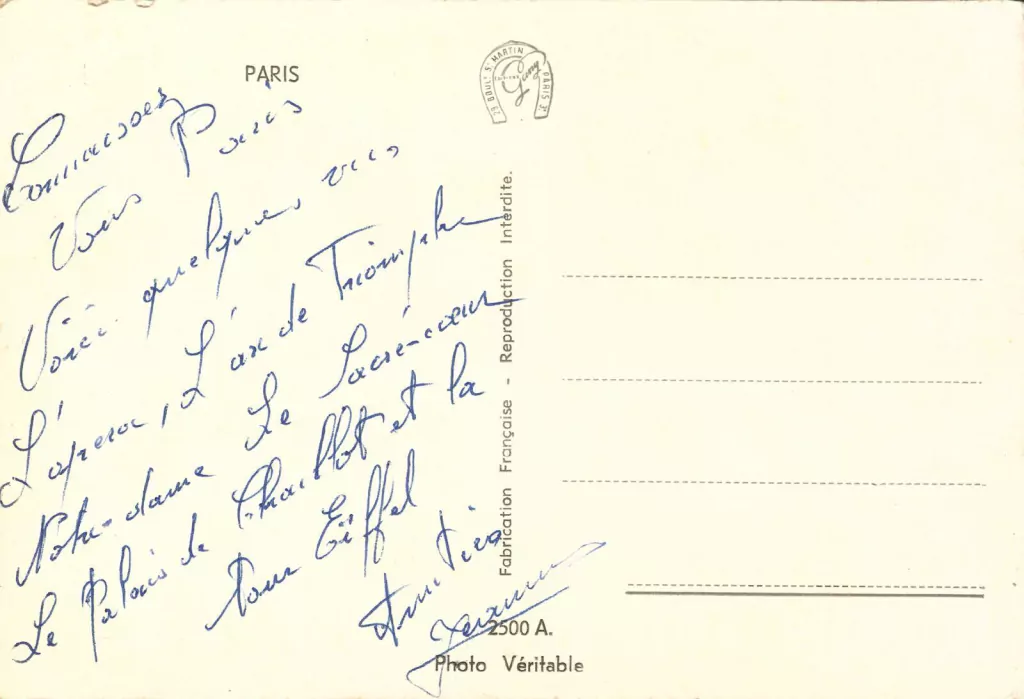 PARIS
29 BOUL! ST MARTIN PARIS 3e
Guy
Connaissez
Vous Paris
Voici quelques vues
L'opera, L'arc de Triomphe
Notre-dame Le Sacré-cœur
Le Palais de Chaillot et la
tour Eiffel
Amitiés
Fabrication Française - Reproduction Interdite.
2500 A.
Photo Véritable